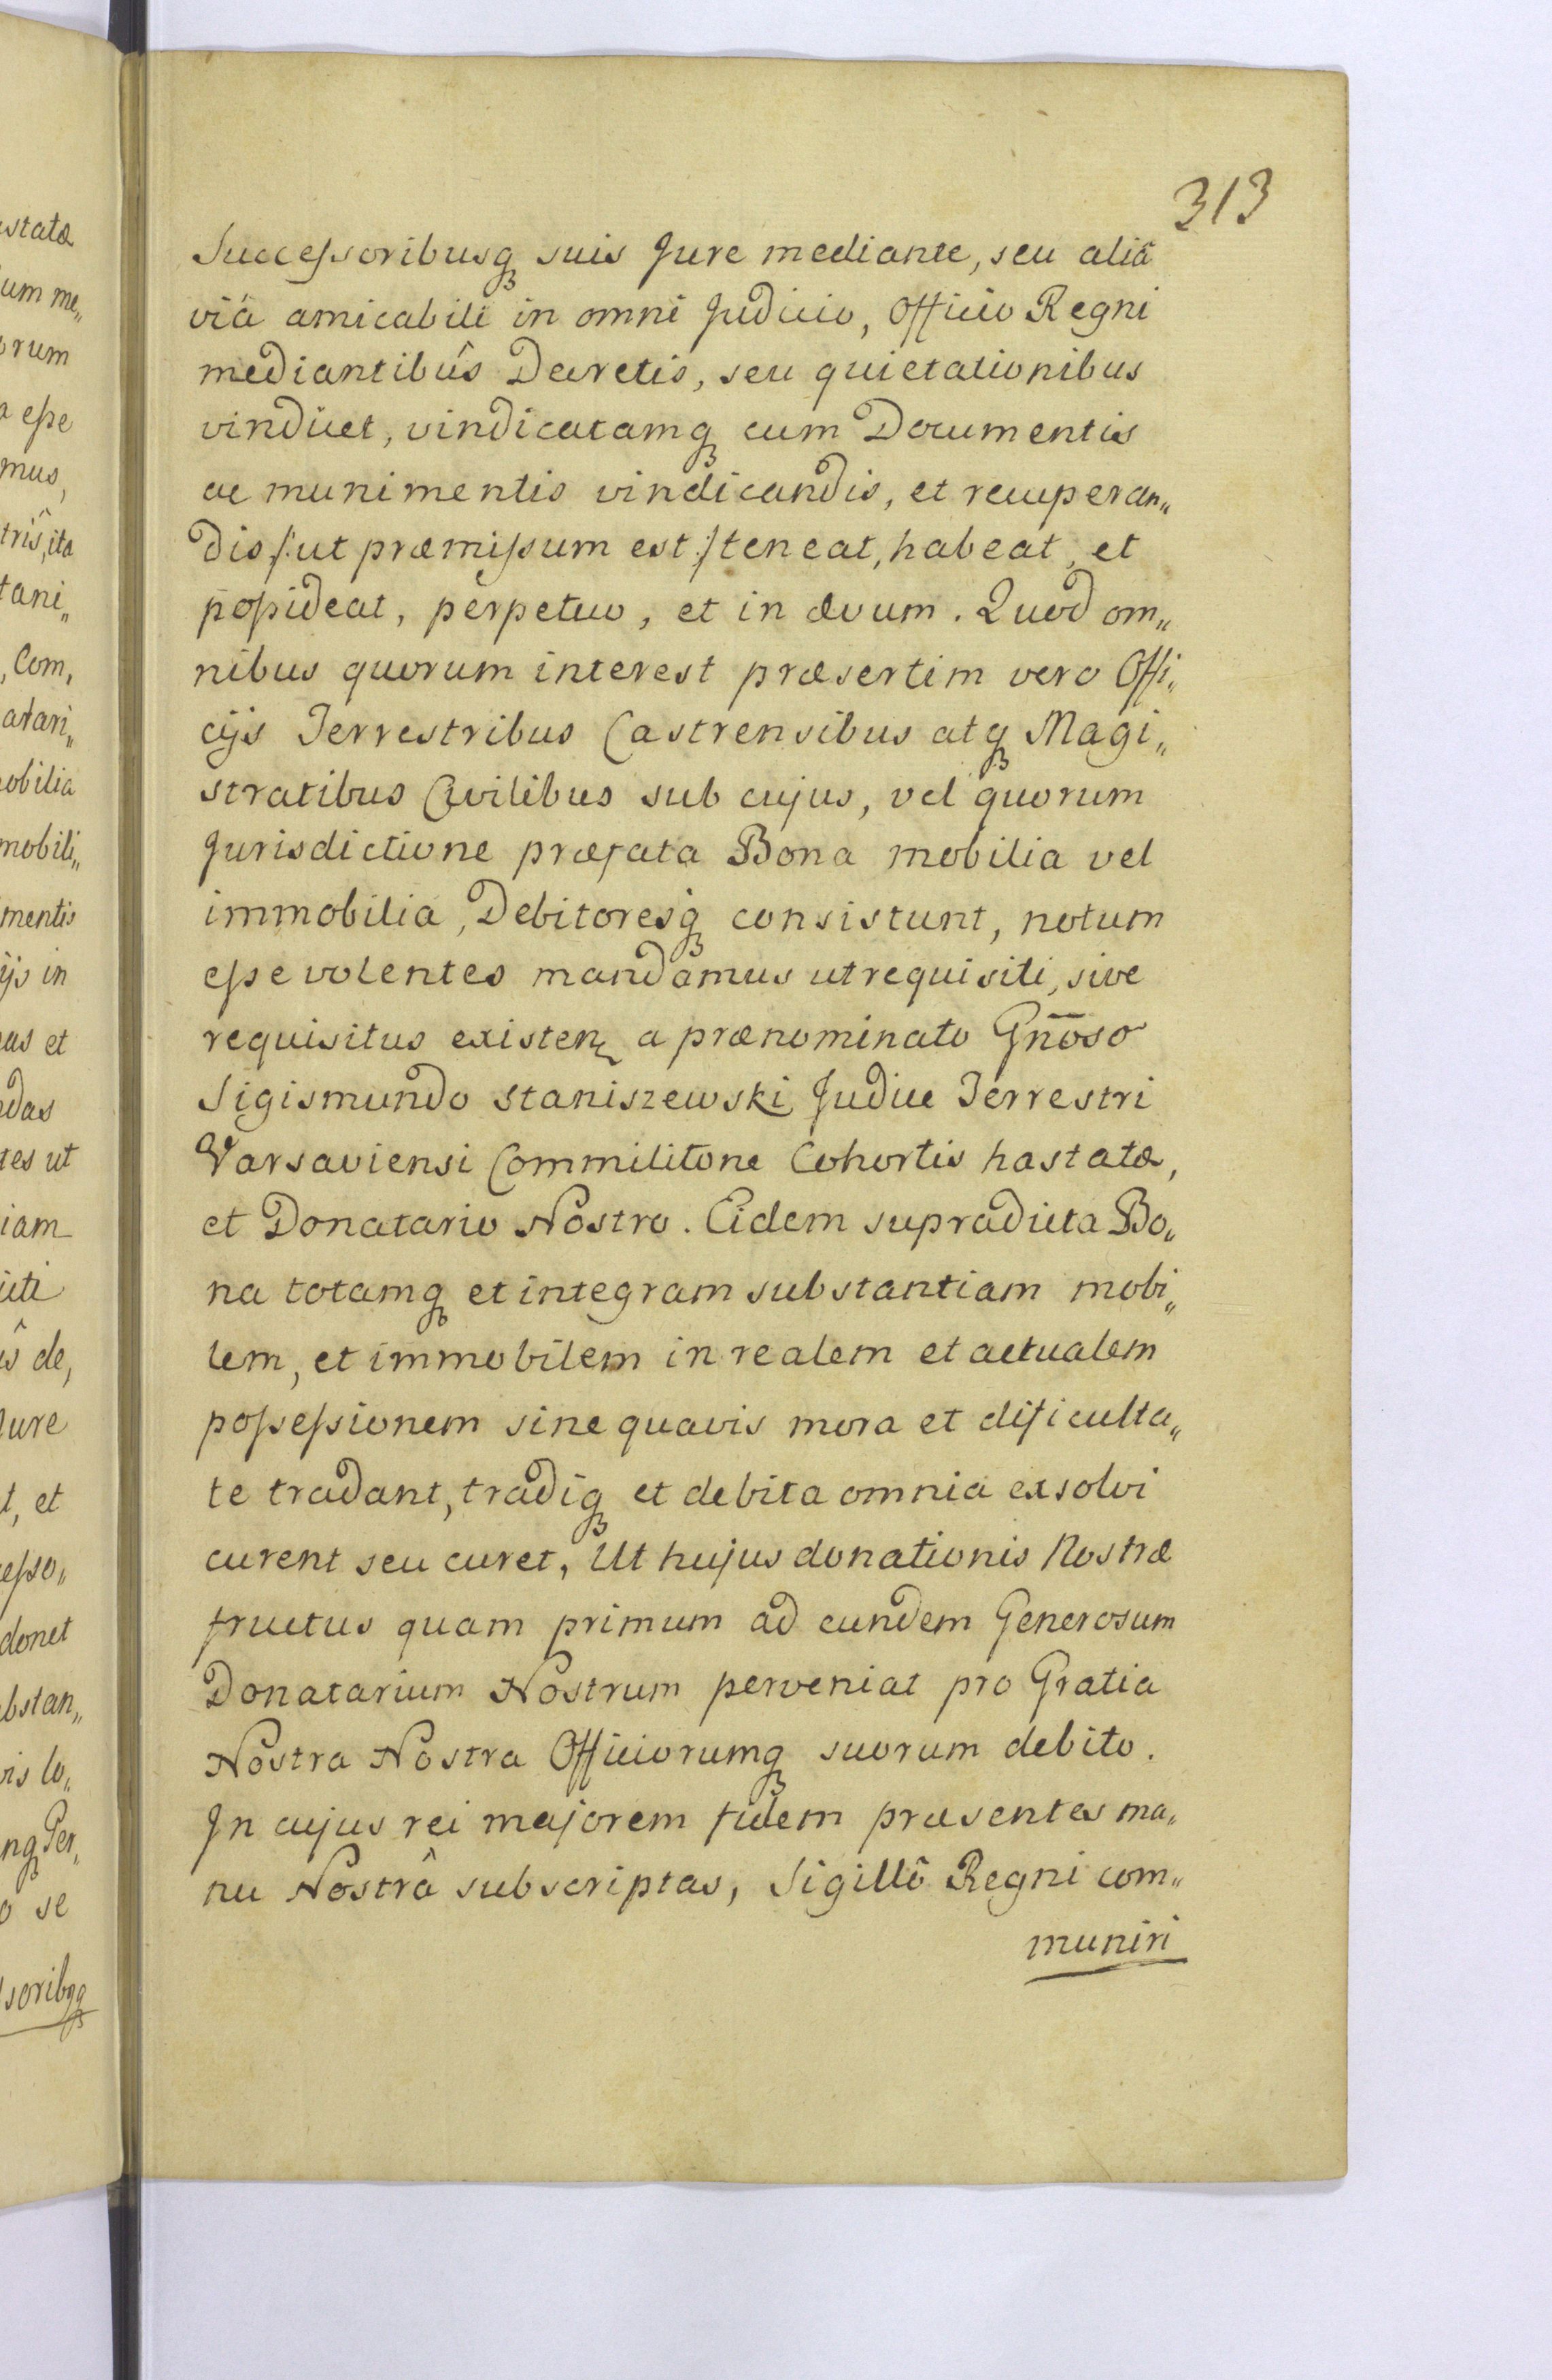 313
Successoribusq́ suis Jure mediante, seu aliâ
viâ amicabili in omni Judicio, Officio Regni
mediantibûs Decretis, seu quietationibus
vindicet, vindicatamq́ cum Documentis
ac munimentis vindicandis, et recuperan„
dis /:ut præmissum est:/ teneat, habeat, et
possideat, perpetuo, et in ævum. Quod om„
nibus quorum interest præsertim vero Offi„
cijs Terrestribus Castrensibus atq́ Magi„
stratibus Civilibus sub cujus, vel quorum
Jurisdictione præfata Bona mobilia vel
immobilia, Debitoresq́ consistunt, notum
esse volentes mandamus ut requisiti, sive
requisitus existen a prænominato Gnōso
Sigismundo Staniszewski Judice Terrestri
Varsaviensi Commilitone Cohortis hastatæ,
et Donatario Nostro. Eidem supradicta Bo„
na totamq́ et integram substantiam mobi„
lem, et immobilem in realem et actualem
possessionem sine quavis mora et dificulta„
te tradant, tradiq́ et debita omnia exsolvi
curent seu curet, Ut hujus donationis Nostræ
fructus quam primum ad eundem Generosum
Donatarium Nostrum perveniat pro Gratia
Nostra Nostra Officiorumq́ suorum debito.
In cujus rei majorem fidem præsentes ma„
nu Nostrâ subscriptas, Sigillô Regni com„
muniri